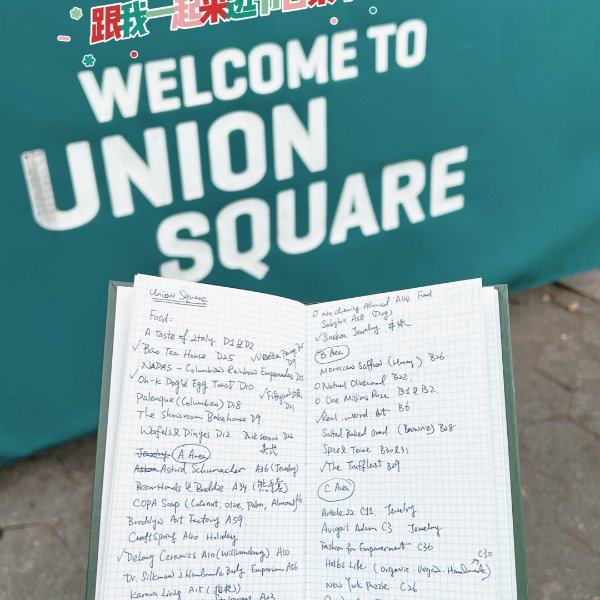 跟我一起来逛
WELCOME TO
UNION
SQUARE
Union Square
Food:
A Taste of Italy D1&D2
✓ Bao Tea House D25
NADAS - Columbia's Rainbow Empanadas
✓ Oh-K Dog & Egg Toast D10
Palenque (Columbia) D18
The Showroom Bakehouse D9
Wafels & Dinges D12 Duck season
Jewelry A Area
Astrid Schumacher A36 (Jewelry)
Bear Hands & Buddie A34
COPA Soap (Coconut, Olive, Palm, Almond)
Brooklyn Art Factory A59
Craft Spring A40 Holiday
✓ DeLong Ceramics A10 (Williamsburg) A10
Dr. Silkman's Handmade Body Emporium A56
Karma Living A15
O No Chewing Allowed A44 Food
A58 (Dog)
✓ Baskin Jewelry
B Area
Moroccan Saffron (Honey) B26
O Natural Olivewood B22
O One Million Rose B1&B2
✓ Real. weird. Art B6
Salted Baked Good (Brownies) B28
Spice & Tease B30&31
✓ The Trufflest B29
C Area
Article 22 C11 Jewelry
Avigail Adam C3 Jewelry
Fashion for Empowerment C36
C30
(Organic. Vegan. Handmade)
New York Puzzle C26